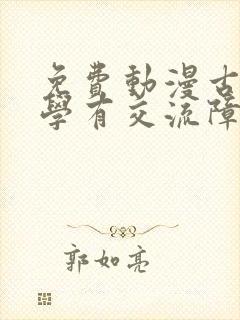 免費動漫古
學有交流障
郭如亮